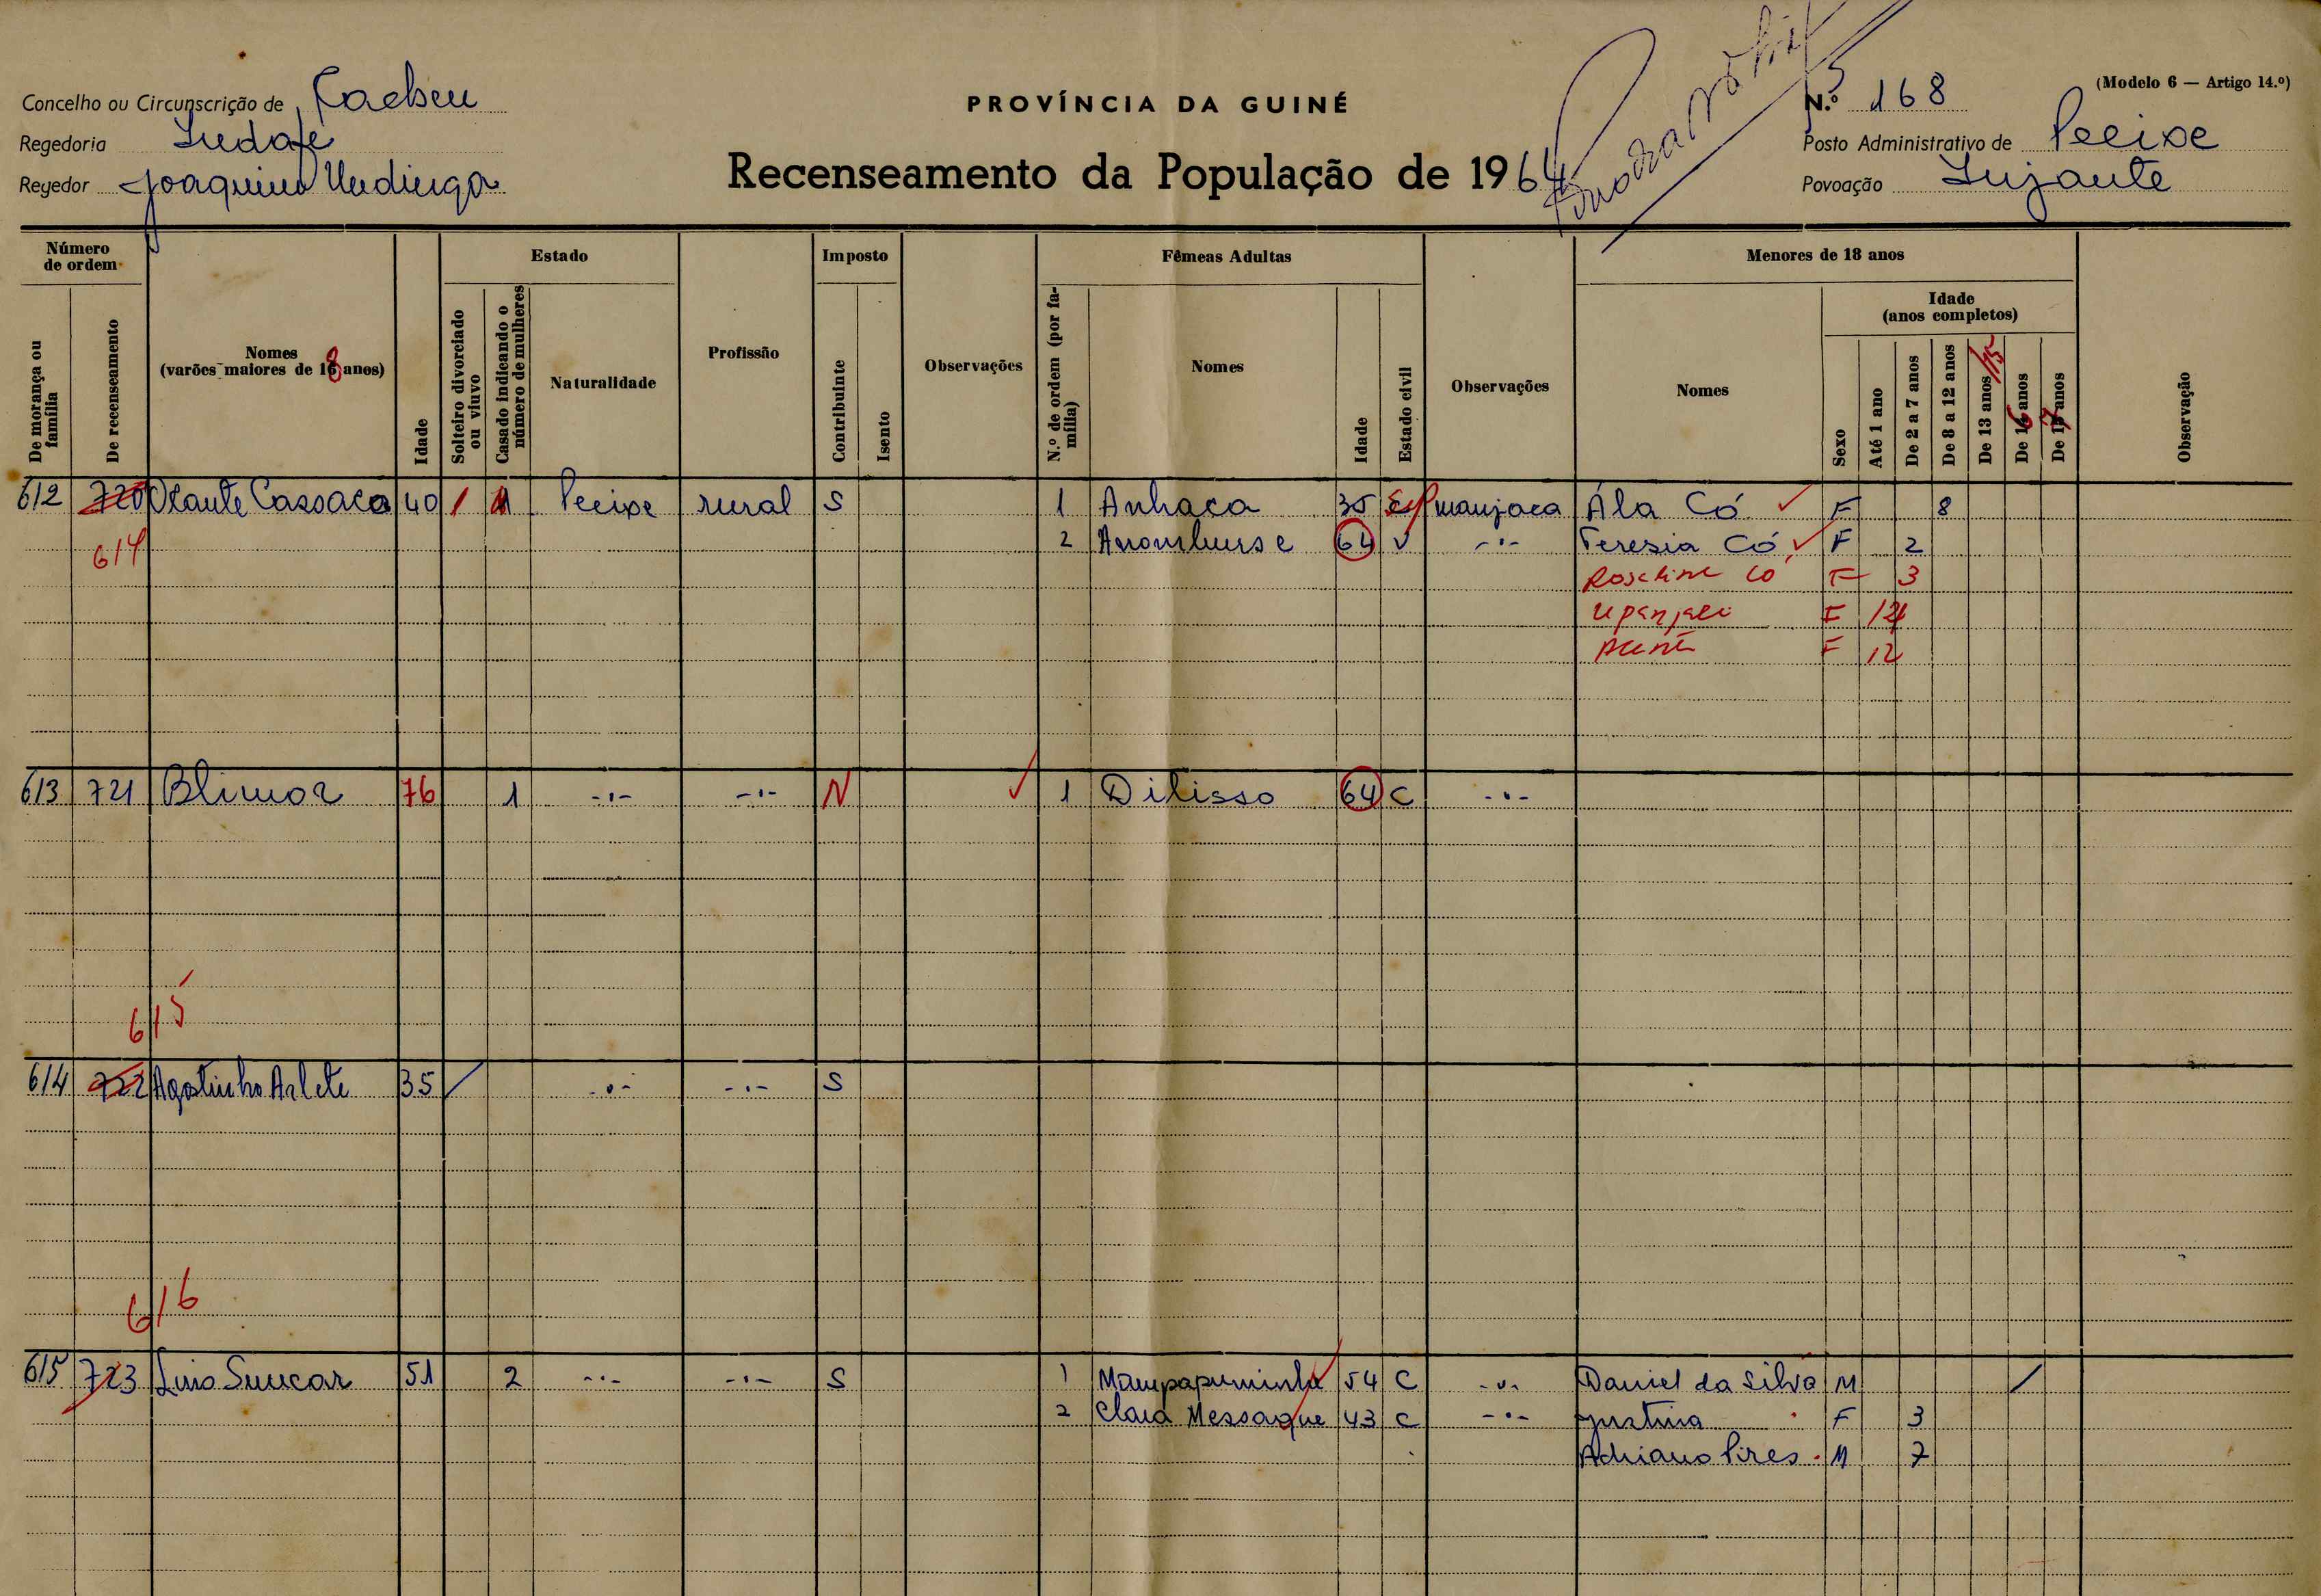 Concelho ou Circunscrição de Cacheu
Regedoria
Regedor Joaquim
PROVÍNCIA DA GUINÉ
Recenseamento da População de 1964
(Modelo 6 — Artigo 14.º)
N.º 168
Posto Administrativo de Pecixe
Povoação Lujante
Número de ordem
De morança ou família
De recenseamento
Nomes
(varões maiores de 18 anos)
Idade
Estado
Solteiro divorciado ou viuvo
Casado indicando o número de mulheres
Naturalidade
Profissão
Imposto
Contribuinte
Isento
Observações
Fêmeas Adultas
N.º de ordem (por família)
Nomes
Idade
Estado civil
Observações
Menores de 18 anos
Nomes
Sexo
Idade
(anos completos)
Até 1 ano
De 2 a 7 anos
De 8 a 12 anos
De 13 anos /15
De 16 anos
De 17 anos
Observação
612 720 Olante Cassaca 40 / 1 Pecixe rural S 1 Anhaca 35 manjaca Ála Có F 8
614 2 64 V -"- Teresia Có F 2
Roseline Có F 3
Upanjali F 12
F 12
613 721 Blimor 76 1 -"- -"- N 1 Dilisso 64 C -"-
615
614 722 Agostinho Arlete 35 / -"- -"- S
616
615 723 Luis Suucar 51 2 -"- -"- S 1 Mampapuminha 54 C -"- Daniel da Silva M /
2 Clara Messaque 43 C -"- Justina F 3
Adriano Pires M 7